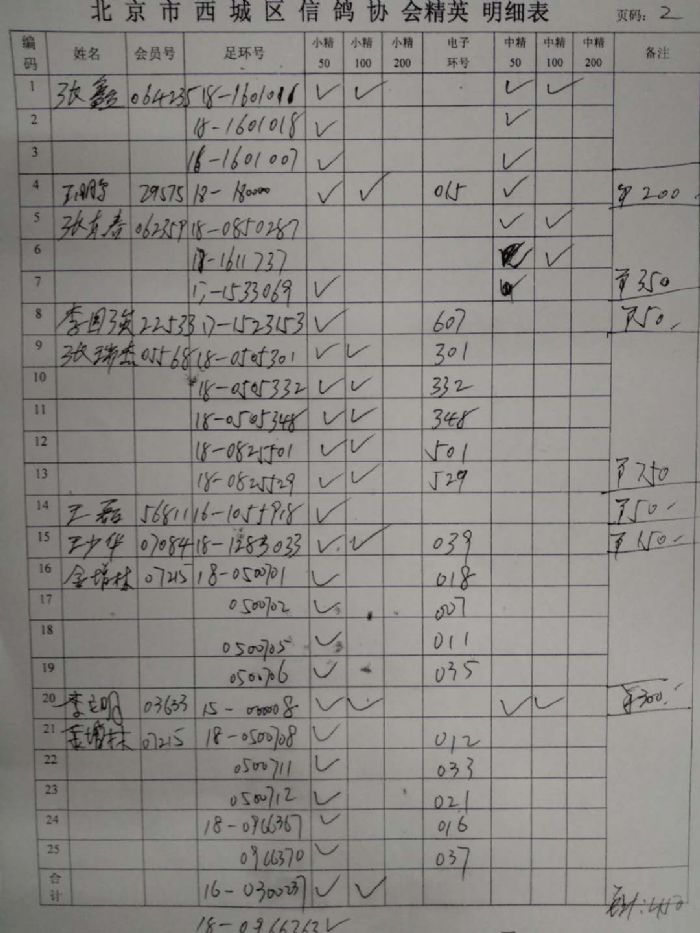 北京市西城区信鸽协会精英明细表 页码:2
编码 姓名 会员号 足环号 小精50 小精100 小精200 电子环号 中精50 中精100 中精200 备注
1 张鑫 064235 18-1601016 ✓ ✓ ✓ ✓
2 18-1601018 ✓ ✓
3 18-1601007 ✓ ✓
4 29575 18-180000 ✓ ✓ 015 ✓ ¥200
5 张青春 062359 18-0850287 ✓ ✓
6 18-1611737 ✓ ✓
7 17-1533069 ✓ ✓ ¥350
8 李国强 22533 17-1523153 ✓ 607 ¥50
9 张瑞杰 05568 18-0505301 ✓ ✓ 301
10 18-0505332 ✓ ✓ 332
11 18-0505348 ✓ ✓ 348
12 18-0825501 ✓ ✓ 501
13 18-0825529 ✓ ✓ 529 ¥750
14 王磊 56811 16-1055918 ✓ ¥50
15 王少华 07084 18-1283033 ✓ ✓ 039 ¥150
16 金增林 07215 18-0500701 ✓ 018
17 0500702 ✓ 007
18 0500705 ✓ 011
19 0500706 ✓ 035
20 李立明 03633 15-000008 ✓ ✓ ✓ ✓ ¥300
21 金增林 07215 18-0500708 ✓ 012
22 0500711 ✓ 033
23 0500712 ✓ 021
24 18-0966367 ✓ 016
25 0966370 ✓ 037
合计 16-030037 ✓ ✓
18-0966262 ✓